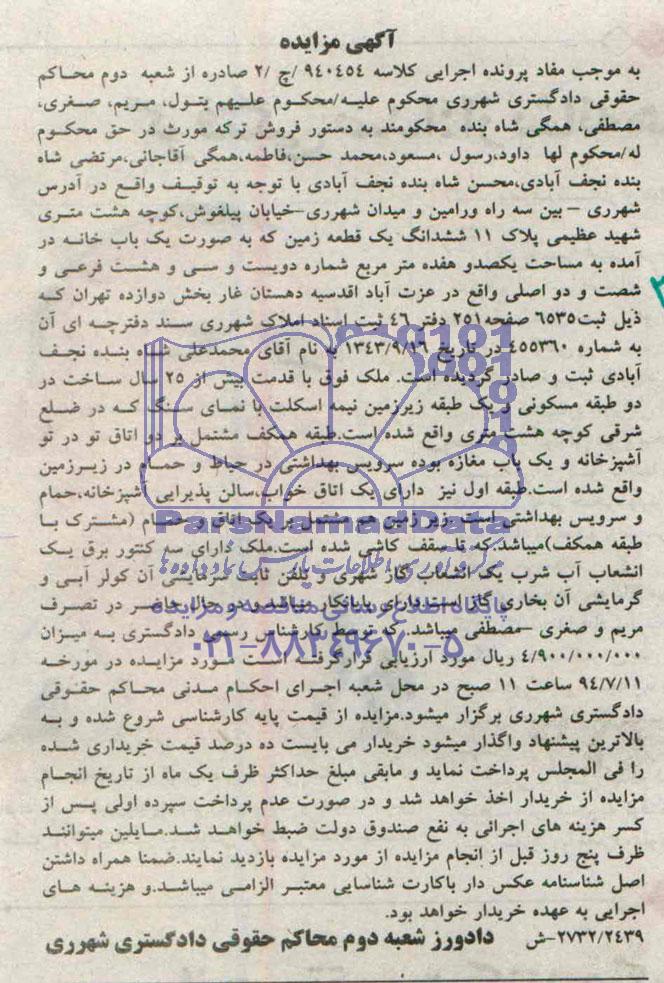 آگهی مزایده
به موجب مفاد پرونده اجرایی کلاسه ۹۴۰۴۵۴ /ج /۲ صادره از شعبه دوم محاکم
حقوقی دادگستری شهرری محکوم علیه/محکوم علیهم بتول، مریم، صغری،
مصطفی، همگی شاه بنده محکومند به دستور فروش ترکه مورث در حق محکوم
له/محکوم لها داود،رسول ،مسعود،محمد حسن،فاطمه،همگی آقاجانی،مرتضی شاه
بنده نجف آبادی،محسن شاه بنده نجف آبادی با توجه به توقیف واقع در آدرس
شهرری – بین سه راه ورامین و میدان شهرری–خیابان پیلغوش،کوچه هشت متری
شهید عظیمی پلاک ۱۱ ششدانگ یک قطعه زمین که به صورت یک باب خانه در
آمده به مساحت یکصدو هفده متر مربع شماره دویست و سی و هشت فرعی و
شصت و دو اصلی واقع در عزت آباد اقدسیه دهستان غار بخش دوازده تهران که
ذیل ثبت۶۵۳۵ صفحه۲۵۱ دفتر ۴۶ ثبت اسناد املاک شهرری سند دفترچه ای آن
به شماره ۴۵۵۳۶۰ در تاریخ ۱۳۴۳/۹/۱۶ به نام آقای محمدعلی شاه بنده نجف
آبادی ثبت و صادر گردیده است. ملک فوق با قدمت بیش از ۲۵ سال ساخت در
دو طبقه مسکونی و یک طبقه زیرزمین نیمه اسکلت با نمای سنگ که در ضلع
شرقی کوچه هشت متری واقع شده است.طبقه همکف مشتمل بر دو اتاق تو در تو
آشپزخانه و یک باب مغازه بوده سرویس بهداشتی در حیاط و حمام در زیرزمین
واقع شده است.طبقه اول نیز دارای یک اتاق خواب،سالن پذیرایی آشپزخانه،حمام
و سرویس بهداشتی است. زیر زمین هم مشتمل بر یک اتاق و حمام (مشترک با
طبقه همکف)میباشد.که تا سقف کاشی شده است.ملک دارای سه کنتور برق یک
انشعاب آب شرب یک انشعاب گاز شهری و تلفن ثابت سرمایشی آن کولر آبی و
گرمایشی آن بخاری گاز است.دارای پایانکار میباشد.و در حال حاضر در تصرف
مریم و صغری –مصطفی میباشد. که توسط کارشناس رسمی دادگستری به میزان
۴/۹۰۰/۰۰۰/۰۰۰ ریال مورد ارزیابی قرارگرفته است مورد مزایده در مورخه
۹۴/۷/۱۱ ساعت ۱۱ صبح در محل شعبه اجرای احکام مدنی محاکم حقوقی
دادگستری شهرری برگزار میشود.مزایده از قیمت پایه کارشناسی شروع شده و به
بالاترین پیشنهاد واگذار میشود خریدار می بایست ده درصد قیمت خریداری شده
را فی المجلس پرداخت نماید و مابقی مبلغ حداکثر ظرف یک ماه از تاریخ انجام
مزایده از خریدار اخذ خواهد شد و در صورت عدم پرداخت سپرده اولی پس از
کسر هزینه های اجرائی به نفع صندوق دولت ضبط خواهد شد.مایلین میتوانند
ظرف پنج روز قبل از انجام مزایده از مورد مزایده بازدید نمایند.ضمنا همراه داشتن
اصل شناسنامه عکس دار یاکارت شناسایی معتبر الزامی میباشد.و هزینه های
اجرایی به عهده خریدار خواهد بود.
۲۷۳۲/۲۴۳۹–ش دادورز شعبه دوم محاکم حقوقی دادگستری شهرری
ParsNamadData
مرکز فرآوری اطلاعات پارس نماد داده ها
پایگاه اطلاع رسانی مناقصه و مزایده
۰۲۱-۸۸۳۴۹۶۷۰-۵